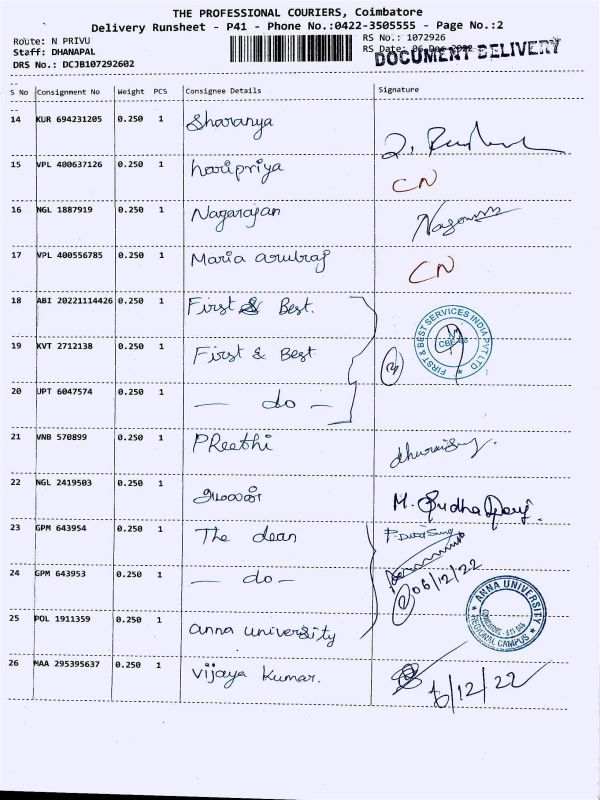 THE PROFESSIONAL COURIERS, Coimbatore
Delivery Runsheet - P41 - Phone No.:0422-3505555 - Page No.:2
Route: N PRIVU
RS No.: 1072926
Staff: DHANAPAL
RS Date: 06 Dec 2022
DOCUMENT DELIVERY
DRS No.: DCJB107292602
S No Consignment No Weight PCS Consignee Details Signature
14 KUR 694231205 0.250 1 Sharanya
15 VPL 400637126 0.250 1 haripriya CN
16 NGL 1887919 0.250 1 Nagarajan
17 VPL 400556785 0.250 1 Maria arulraj CN
18 ABI 20221114426 0.250 1 First & Best.
FIRST & BEST SERVICES INDIA PVT LTD
19 KVT 2712138 0.250 1 First & Best
20 UPT 6047574 0.250 1 — do —
21 VNB 570899 0.250 1 PReethi
22 NGL 2419503 0.250 1
23 GPM 643954 0.250 1 The dean
24 GPM 643953 0.250 1 — do — 06/12/22
ANNA UNIVERSITY
REGIONAL CAMPUS
25 POL 1911359 0.250 1 anna university
26 MAA 295395637 0.250 1 Vijaya Kumar. 6/12/22